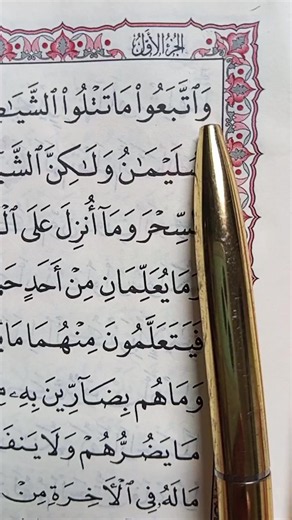 الجزء الأول
وَٱتَّبَعُوا۟ مَا تَتْلُوا۟ ٱلشَّيَـٰ
سُلَيْمَـٰنُ وَلَـٰكِنَّ ٱلشَّيَـ
ٱلسِّحْرَ وَمَآ أُنزِلَ عَلَى ٱلْ
وَمَا يُعَلِّمَانِ مِنْ أَحَدٍ حَ
فَيَتَعَلَّمُونَ مِنْهُمَا مَا
وَمَا هُم بِضَآرِّينَ بِهِۦ مِ
مَا يَضُرُّهُمْ وَلَا يَنفَ
مَا لَهُۥ فِى ٱلْـَٔاخِرَةِ مِنْ